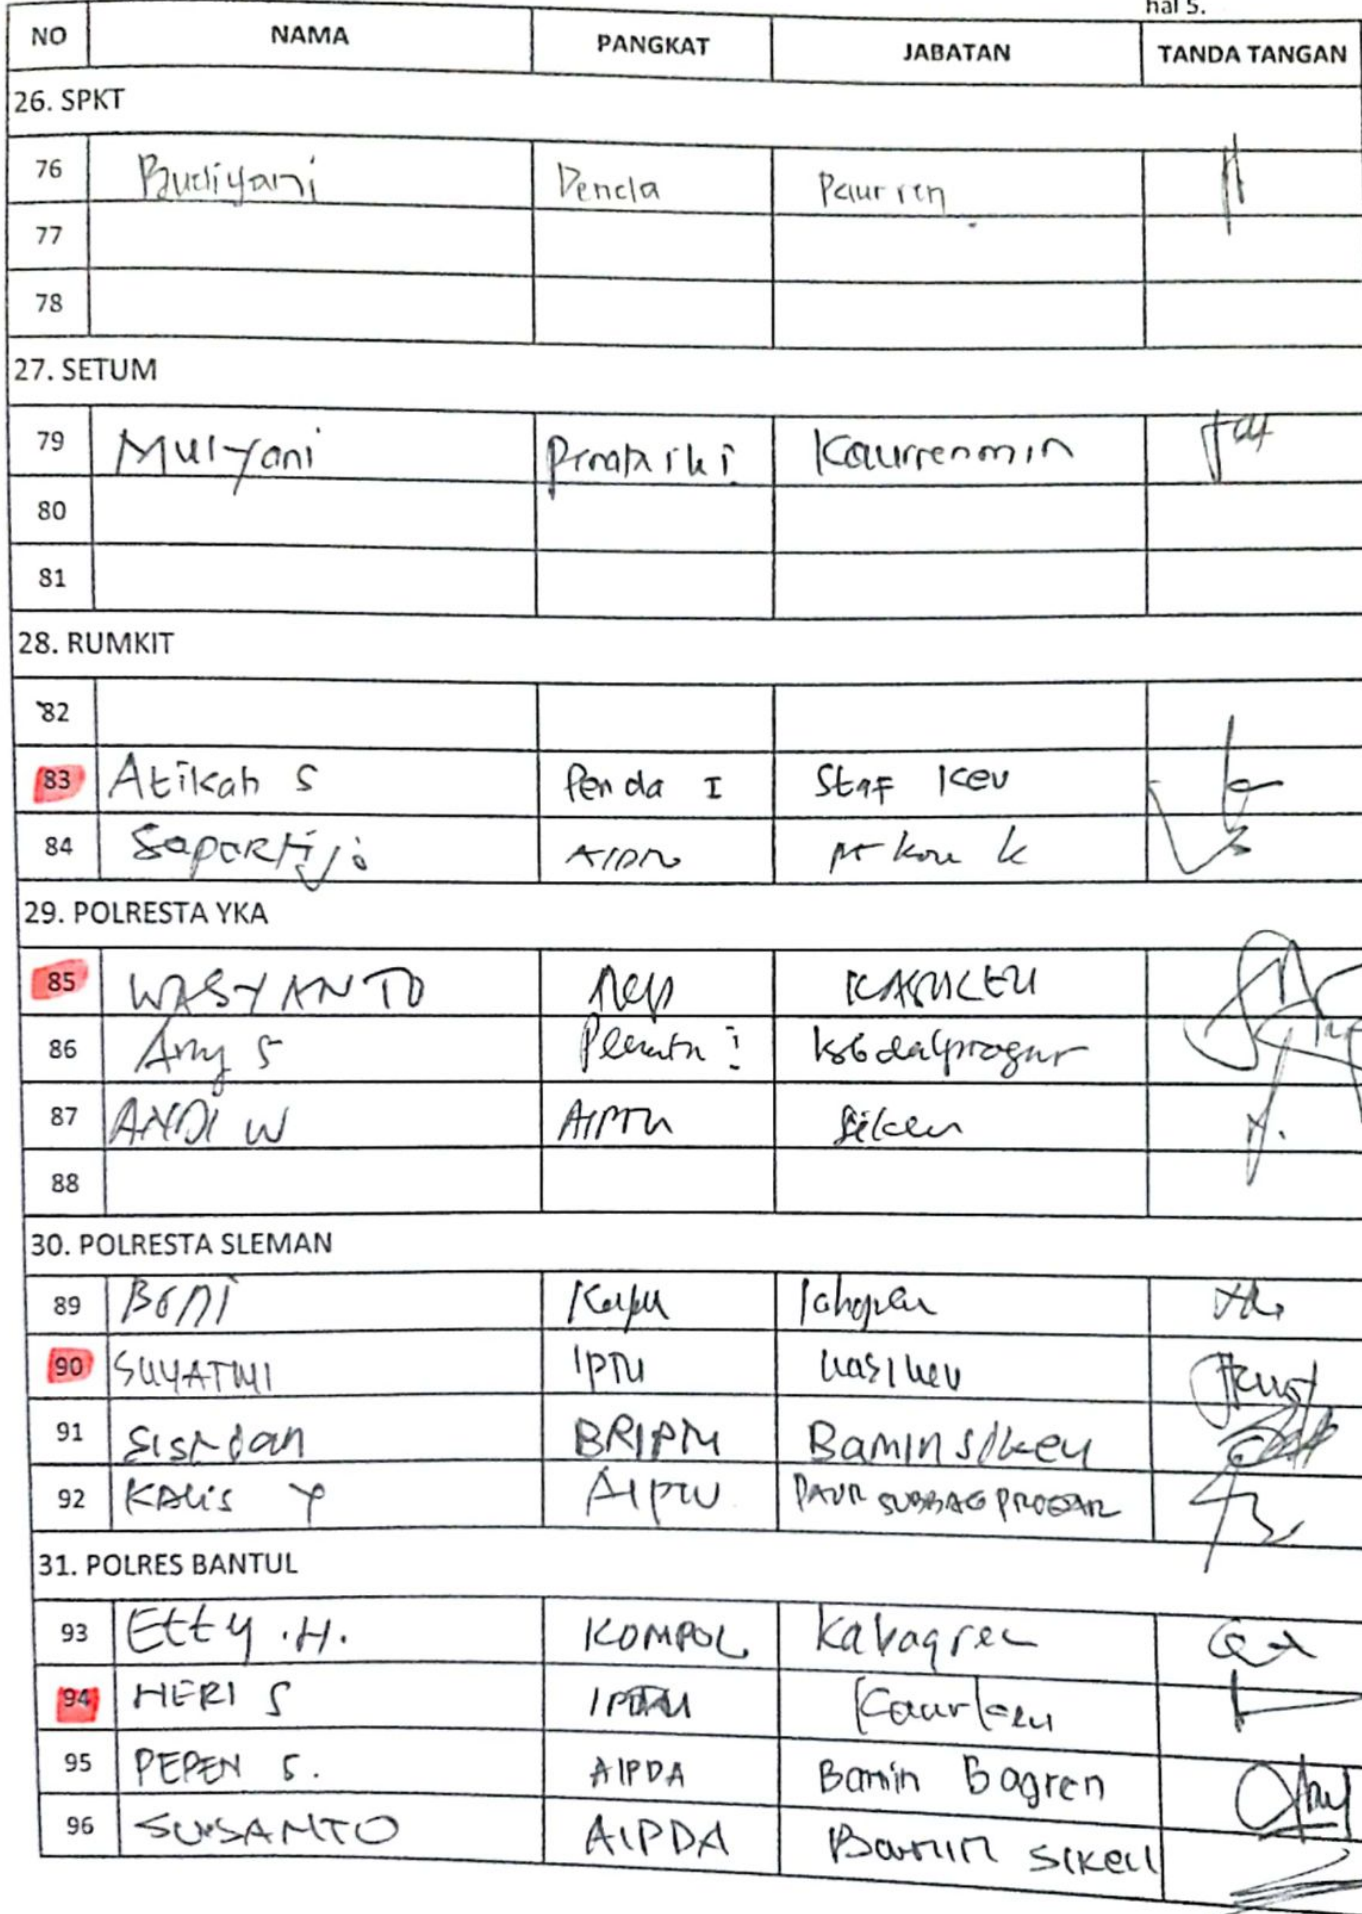 hal 5.
NO NAMA PANGKAT JABATAN TANDA TANGAN
26. SPKT
76 Budiyani Penda Paurren
77
78
27. SETUM
79 Mulyani Kaurrenmin
80
81
28. RUMKIT
82
83 Atikah S Penda I Staf Keu
84
29. POLRESTA YKA
85 WASYANTO AKP KASIKEU
86 Any S
87 ANDI W AIPTU Sikeu
88
30. POLRESTA SLEMAN
89 Boni
90 SUYATMI IPTU Kasikeu
91 BRIPTU Bamin sikeu
92 KALIS Y AIPTU PAUR SUBBAG PROGAR
31. POLRES BANTUL
93 Etty .H. KOMPOL Kabagren
94 HERI S IPTU Kaurkeu
95 PEPEN S. AIPDA Bamin Bagren
96 SUSANTO AIPDA Bamin Sikeu